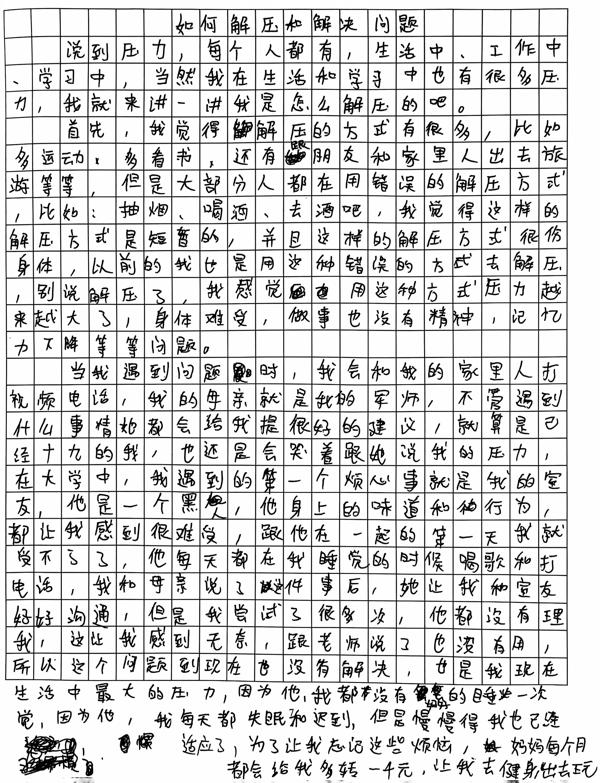 如何解压和解决问题
说到压力，每个人都有，生活中、工作中
、学习中，当然我在生活和学习中也有很多压
力，我就来讲一讲我是怎么解压的吧。
首先，我觉得解压的方式有很多，比如
多运动、多看书，还有跟朋友和家里人出去旅
游等等，但是大部分人都在用错误的解压方式
，比如：抽烟、喝酒、去酒吧，我觉得这样的
解压方式是短暂的，并且这样的解压方式很伤
身体，以前的我也是用这种错误的方式去解压
，别说解压了，我感觉用这种方式压力越
来越大了，身体难受，做事也没有精神，记忆
力下降等等问题。
当我遇到问题时，我会和我的家里人打
视频电话，我的母亲就是我的军师，不管遇到
什么事情她都会给我提很好的建议，就算是已
经十九的我，也还是会哭着跟她说我的压力，
在大学中，我遇到的第一个烦心事就是我的室
友，他是一个黑人，他身上的味道和种行为，
都让我感到很难受，跟他在一起的第一天我就
受不了了，他每天都在我睡觉的时候喝歌和打
电话，我和母亲说了这件事后，她让我和室友
好好沟通，但是我尝试了很多次，他都没有理
我，这让我感到无奈，跟老师说了也没有用，
所以这个问题到现在也没有解决，也是我现在
生活中最大的压力，因为他，我都没有好好的睡一次
觉，因为他，我每天都失眠和迟到，但是慢慢得我也已经
适应了，为了让我忘记这些烦恼，妈妈每个月
都会给我多转一千元，让我去健身出去玩